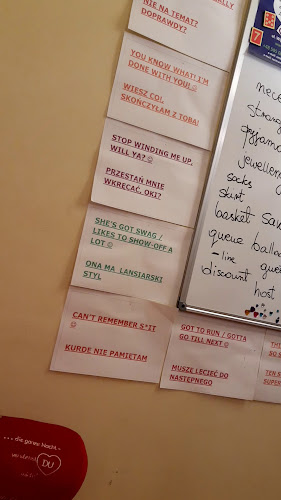 NIE NA TEMAT?
DOPRAWDY?
YOU KNOW WHAT! I'M
DONE WITH YOU!☺
WIESZ CO!,
SKOŃCZYŁAM Z TOBA!
STOP WINDING ME UP,
WILL YA?☺
PRZESTAŃ MNIE
WKRĘCAĆ, OKI?
SHE'S GOT SWAG /
LIKES TO SHOW-OFF A
LOT☺
ONA MA LANSIARSKI
STYL
CAN'T REMEMBER S*IT
☺
KURDE NIE PAMIĘTAM
GOT TO RUN / GOTTA
GO TILL NEXT☺
MUSZĘ LECIEĆ DO
NASTĘPNEGO
SO S
TEN S
SUPER
7
jewellery
socks
skirt
basket
queue
-line
discount host
... die ganze Nacht.
DU